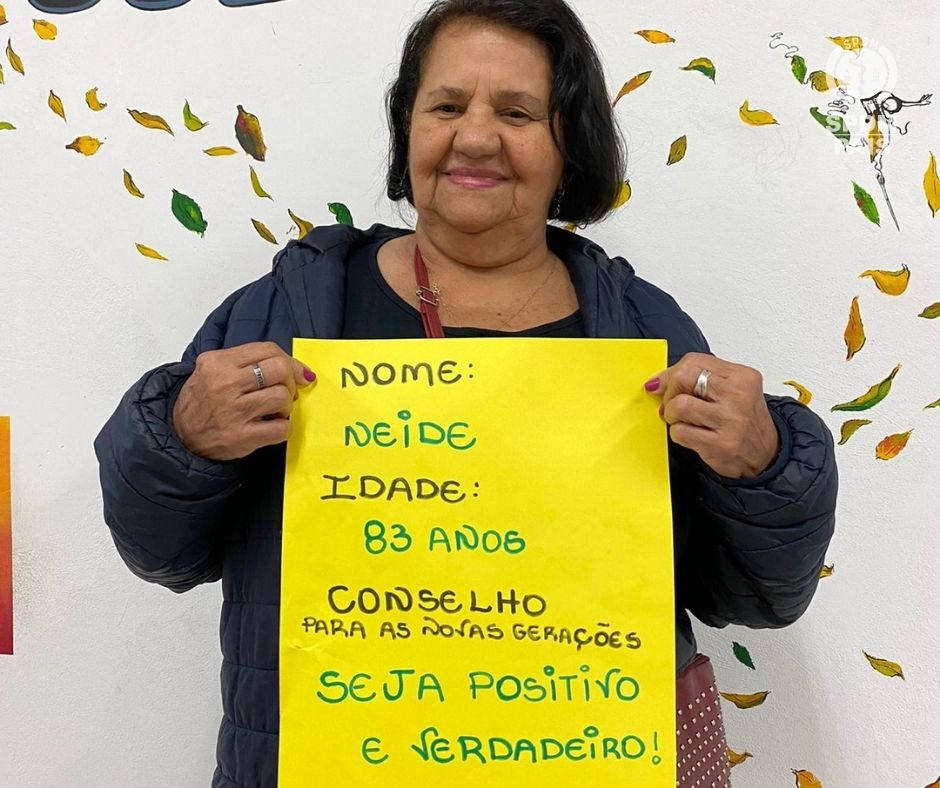 NOME:
NEIDE
IDADE:
83 ANOS
CONSELHO
PARA AS NOVAS GERAÇÕES
SEJA POSITIVO
E VERDADEIRO!